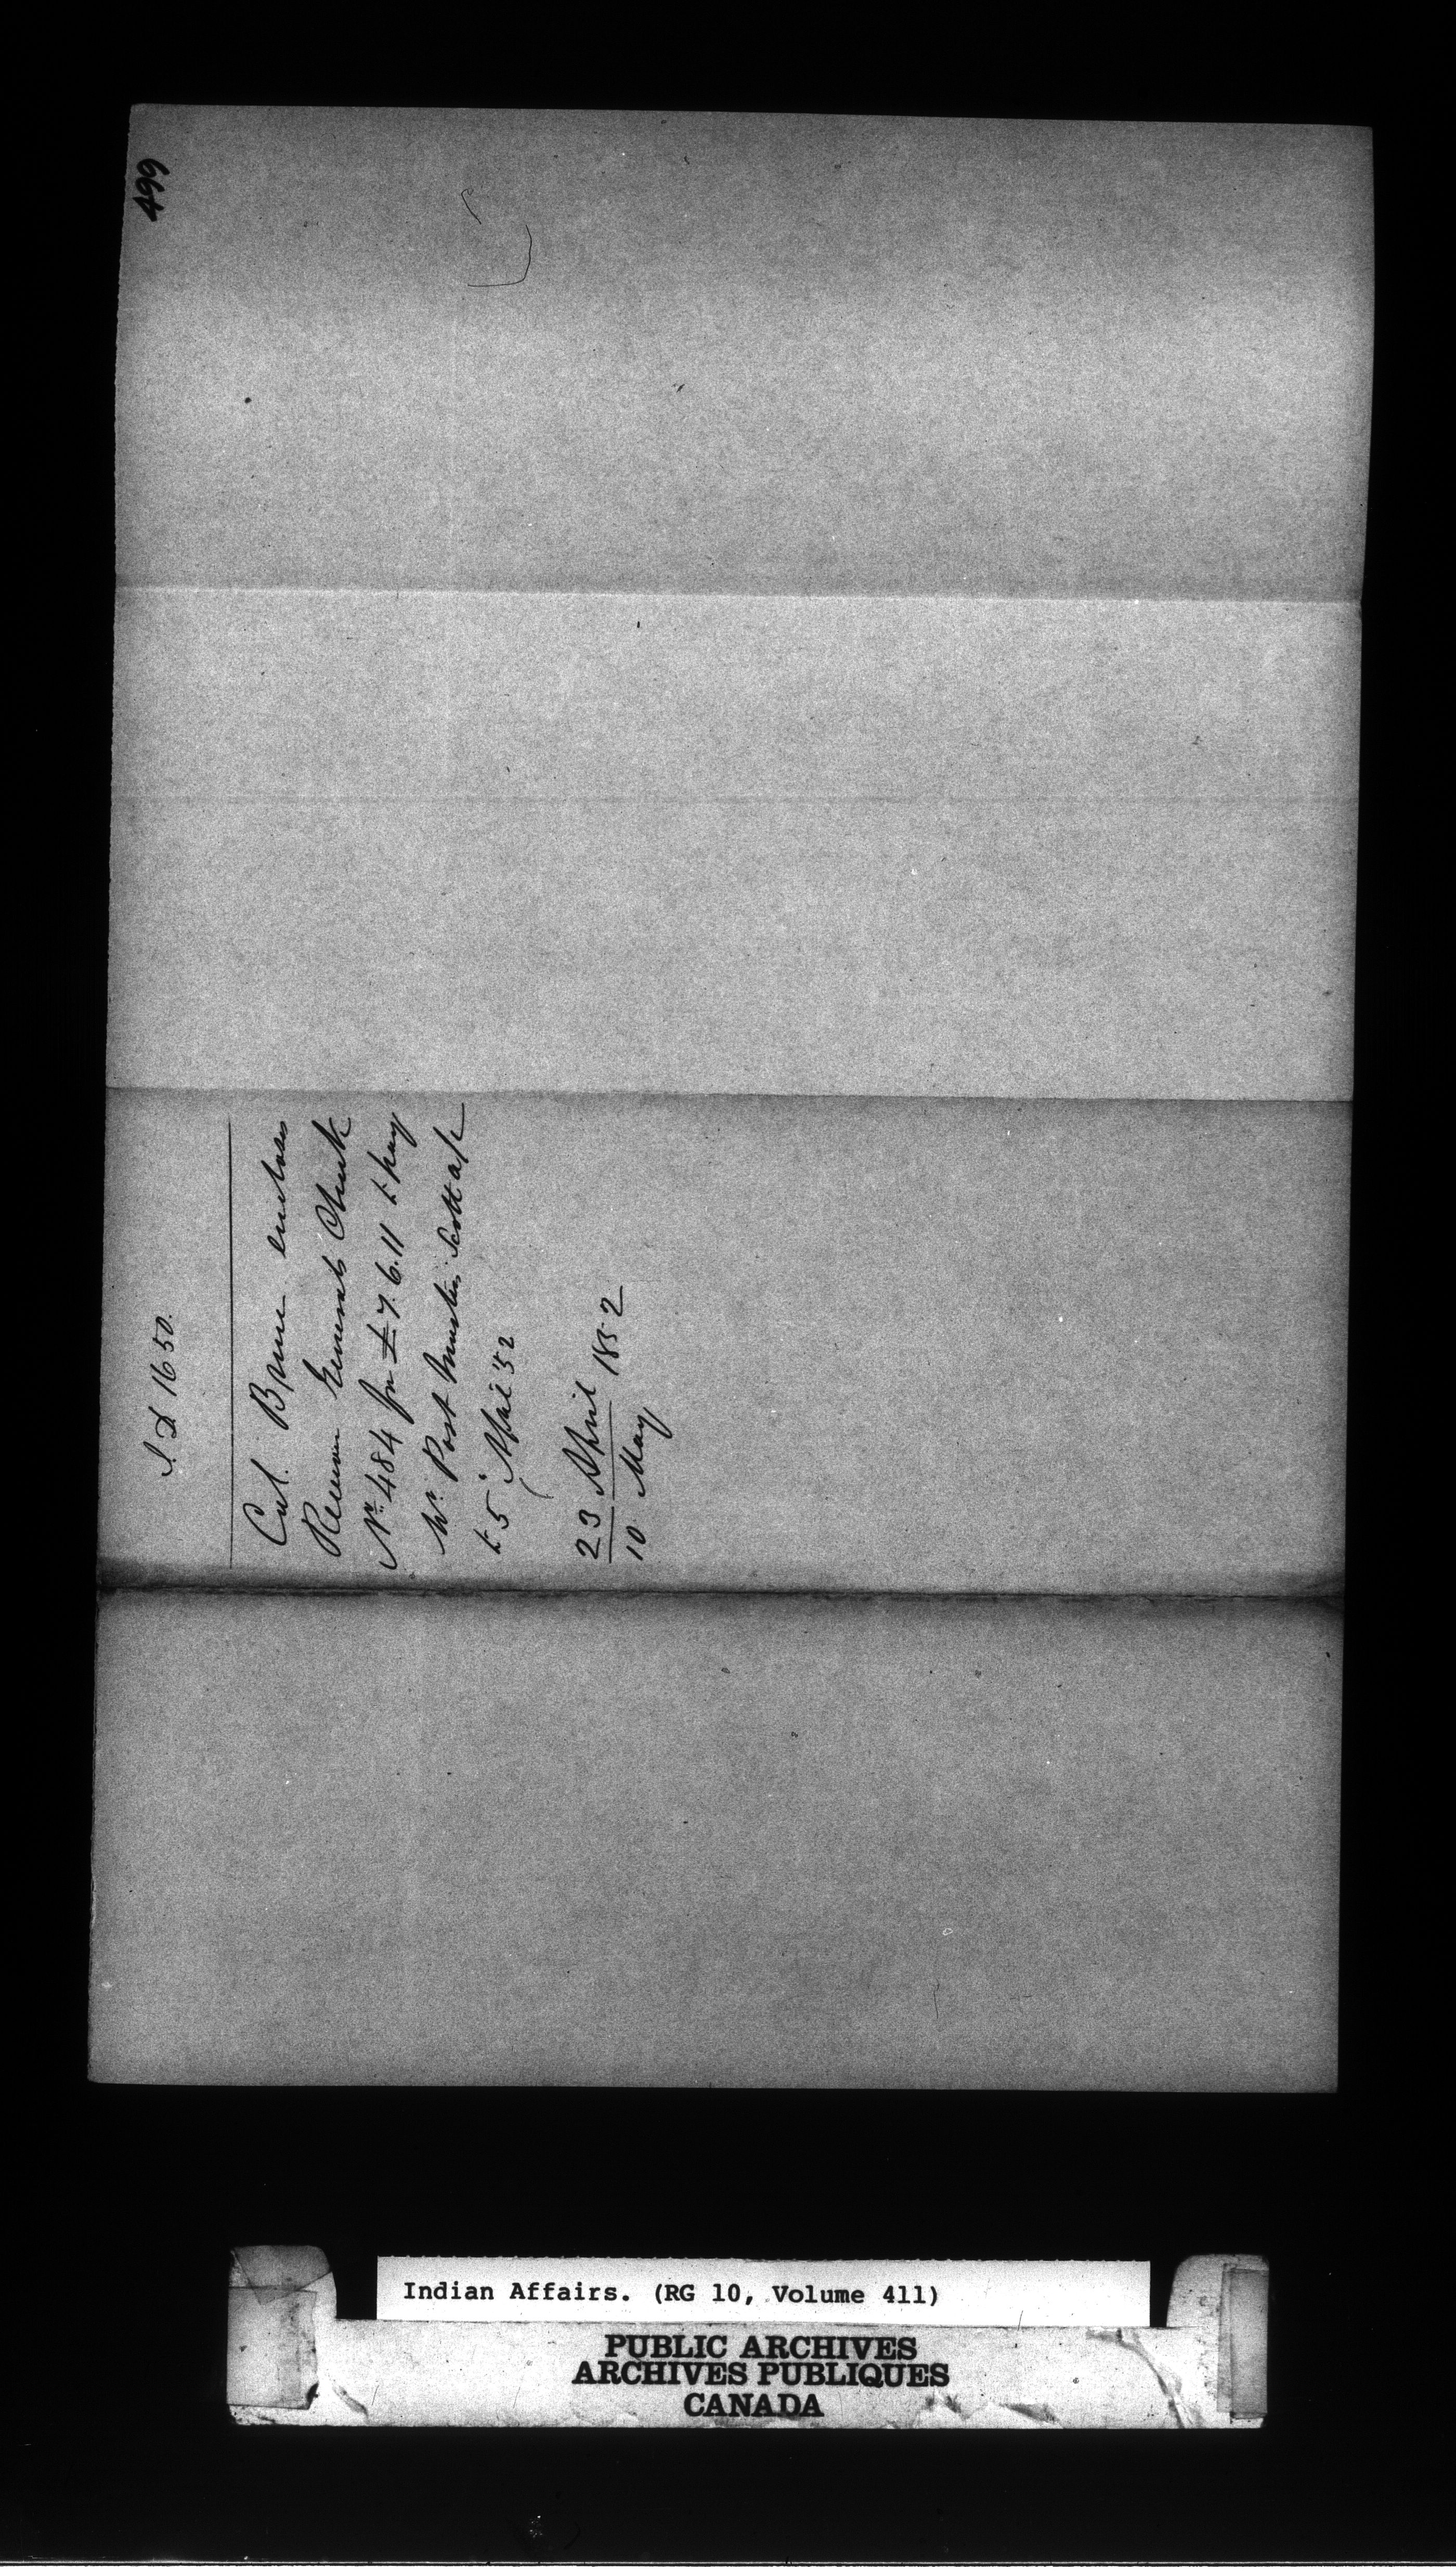 499
I D 1650.
Col. Bruce encloses
Receiver General's Check
No. 484 for £7.6.11 to pay
Mr. Post Master Scott a/c
to 5 April '52
23 April 1852
10 May
Indian Affairs. (RG 10, Volume 411)
PUBLIC ARCHIVES
ARCHIVES PUBLIQUES
CANADA